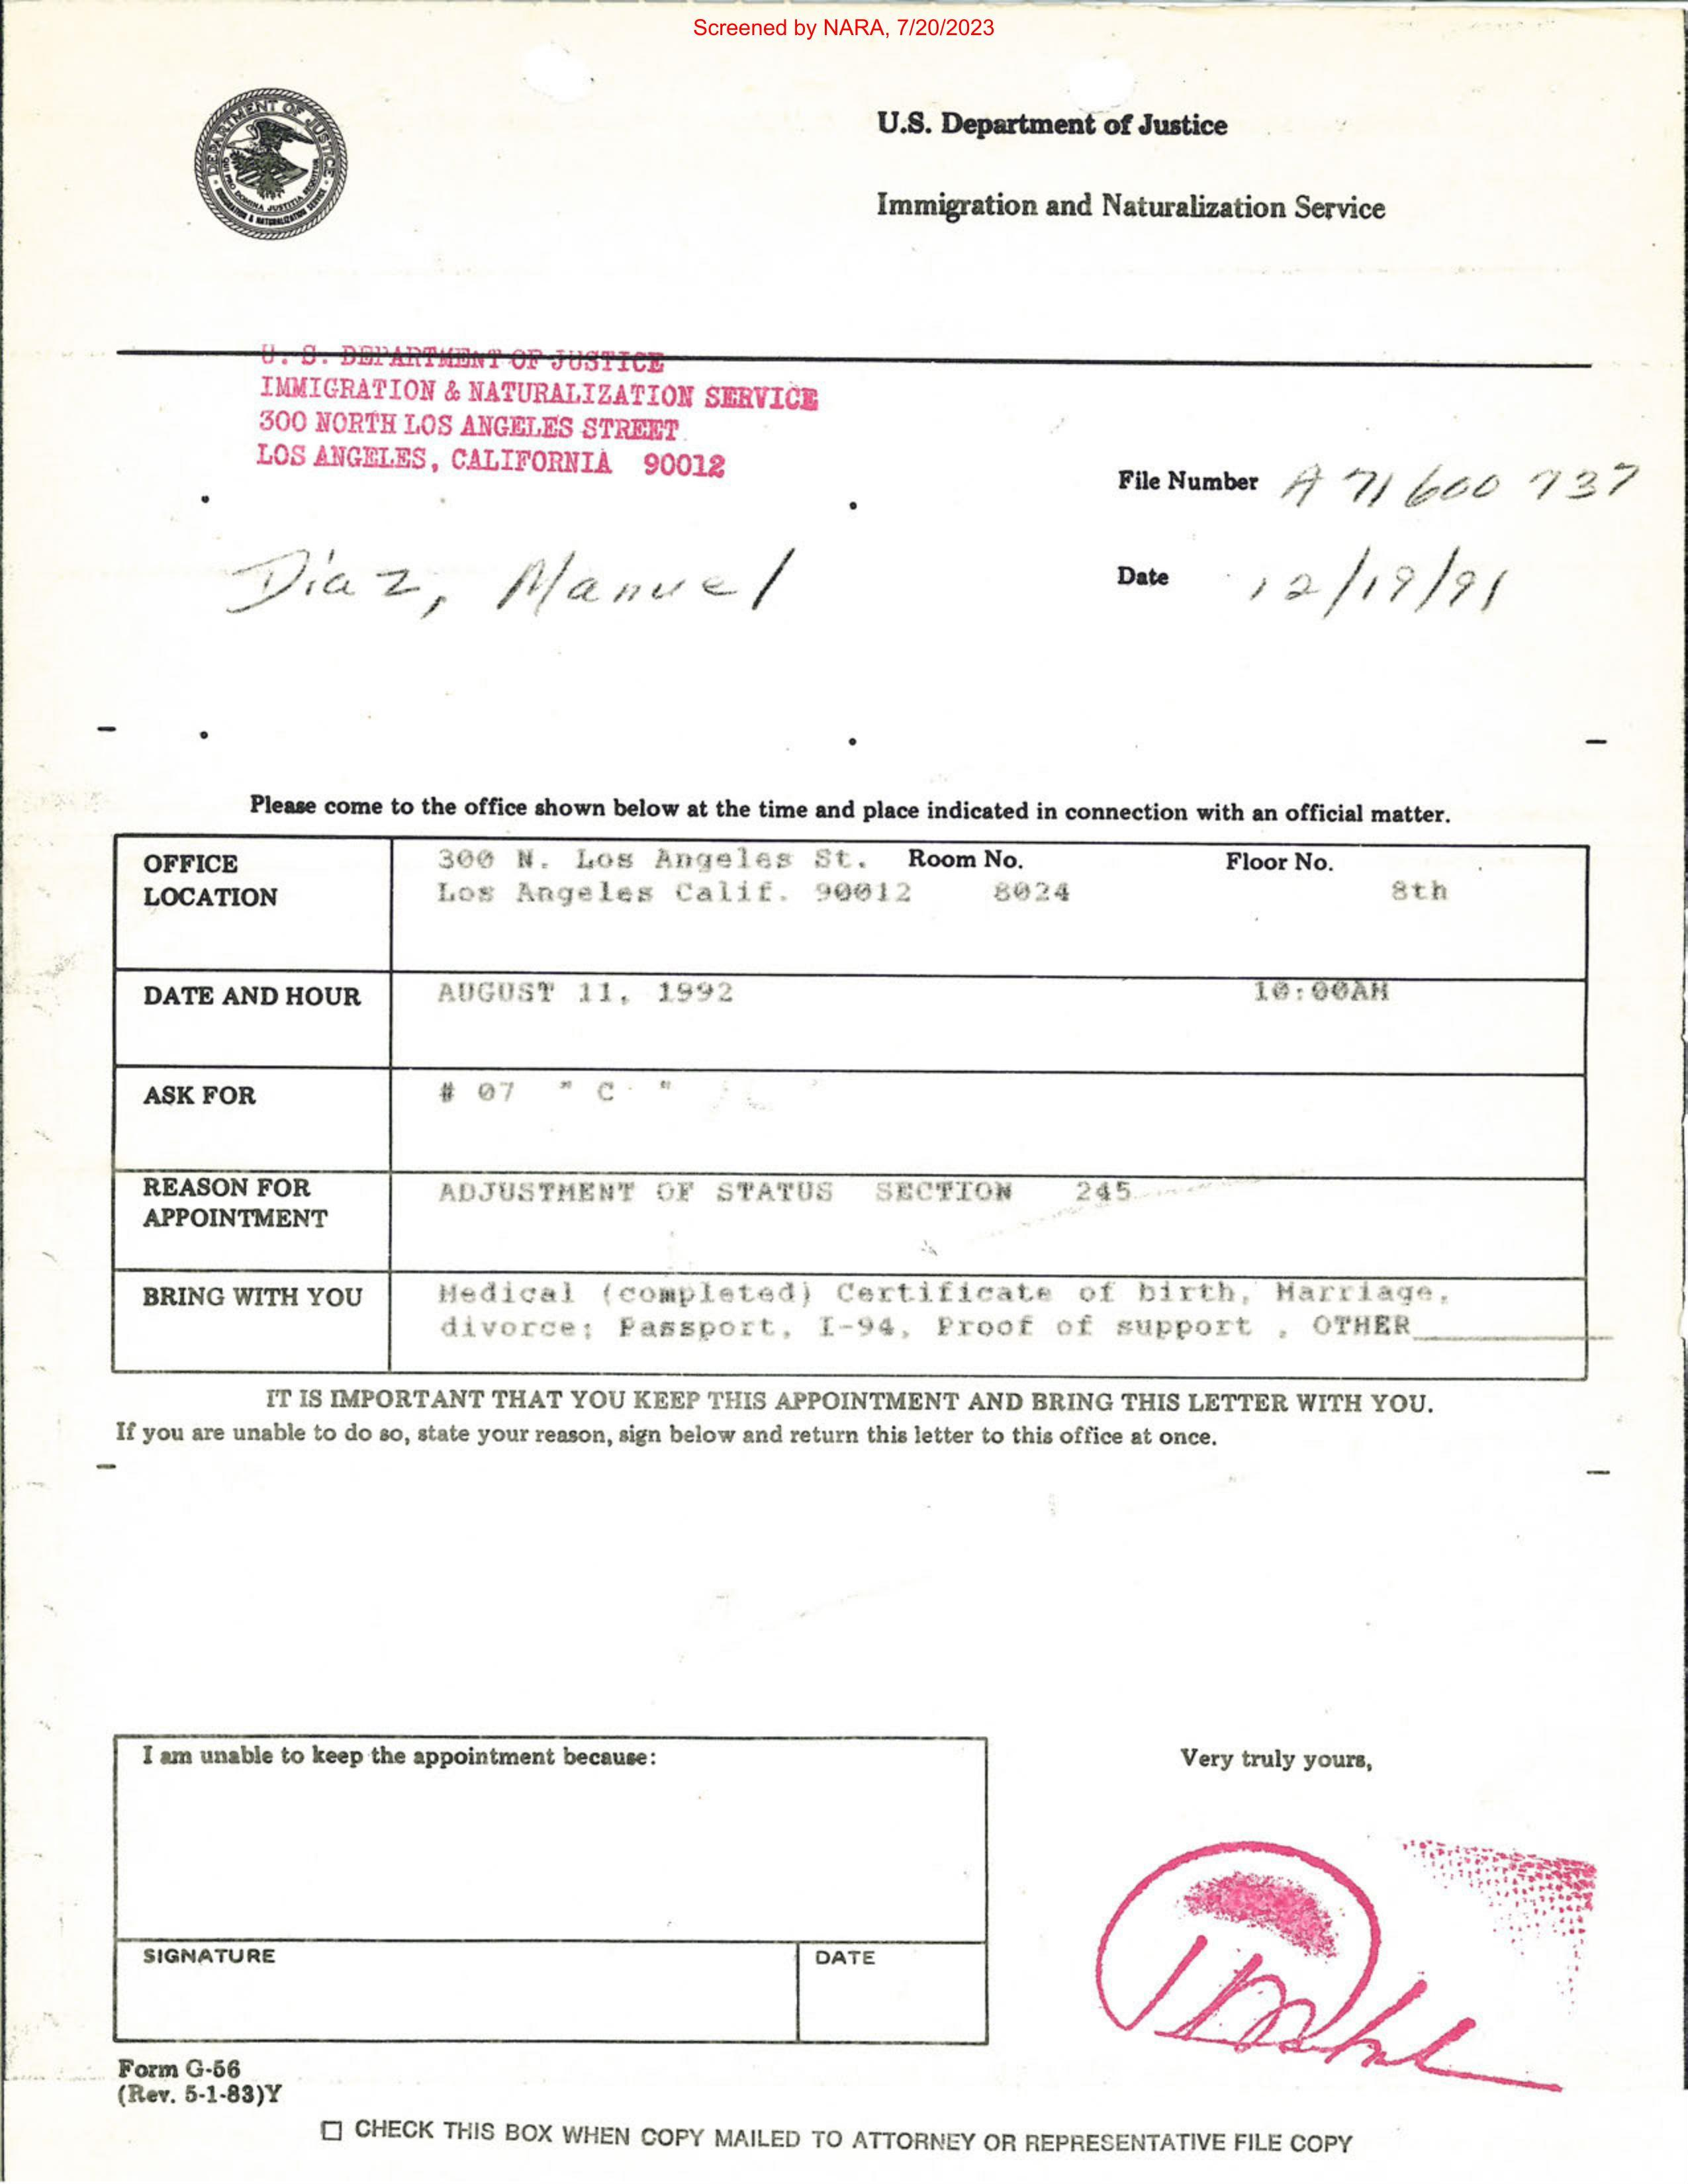 Screened by NARA, 7/20/2023
DEPARTMENT OF JUSTICE
QUI PRO DOMINA JUSTITIA SEQUITUR
IMMIGRATION & NATURALIZATION SERVICE
U.S. Department of Justice
Immigration and Naturalization Service
U. S. DEPARTMENT OF JUSTICE
IMMIGRATION & NATURALIZATION SERVICE
300 NORTH LOS ANGELES STREET
LOS ANGELES, CALIFORNIA 90012
File Number A 71 600 737
Díaz, Manuel
Date 12/19/91
Please come to the office shown below at the time and place indicated in connection with an official matter.
OFFICE LOCATION
300 N. Los Angeles St. Room No. Floor No.
Los Angeles Calif. 90012 8024 8th
DATE AND HOUR AUGUST 11, 1992 10:00AM
ASK FOR # 07 " C "
REASON FOR APPOINTMENT
ADJUSTMENT OF STATUS SECTION 245
BRING WITH YOU Medical (completed) Certificate of birth, Marriage,
divorce; Passport, I-94, Proof of support , OTHER
IT IS IMPORTANT THAT YOU KEEP THIS APPOINTMENT AND BRING THIS LETTER WITH YOU.
If you are unable to do so, state your reason, sign below and return this letter to this office at once.
I am unable to keep the appointment because:
Very truly yours,
SIGNATURE DATE
Form G-56
(Rev. 5-1-83)Y
CHECK THIS BOX WHEN COPY MAILED TO ATTORNEY OR REPRESENTATIVE FILE COPY